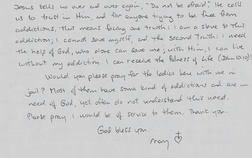 Jesus tells us over and over again, "Do not be afraid." He calls
us to trust in Him, and for anyone trying to be free from
addictions, that means facing one truth: I am a slave to this
addiction; I cannot save myself, and the second truth: I need
the help of God, who alone can save me; with Him, I can live
without my addiction. I can receive the fullness of life (John 10:10).
Would you please pray for the ladies here with me in
jail? Most of them have some kind of addictions and are in
need of God, yet often do not understand this need.
Please pray I would be of service to them. Thank you.
God bless you.
Mary